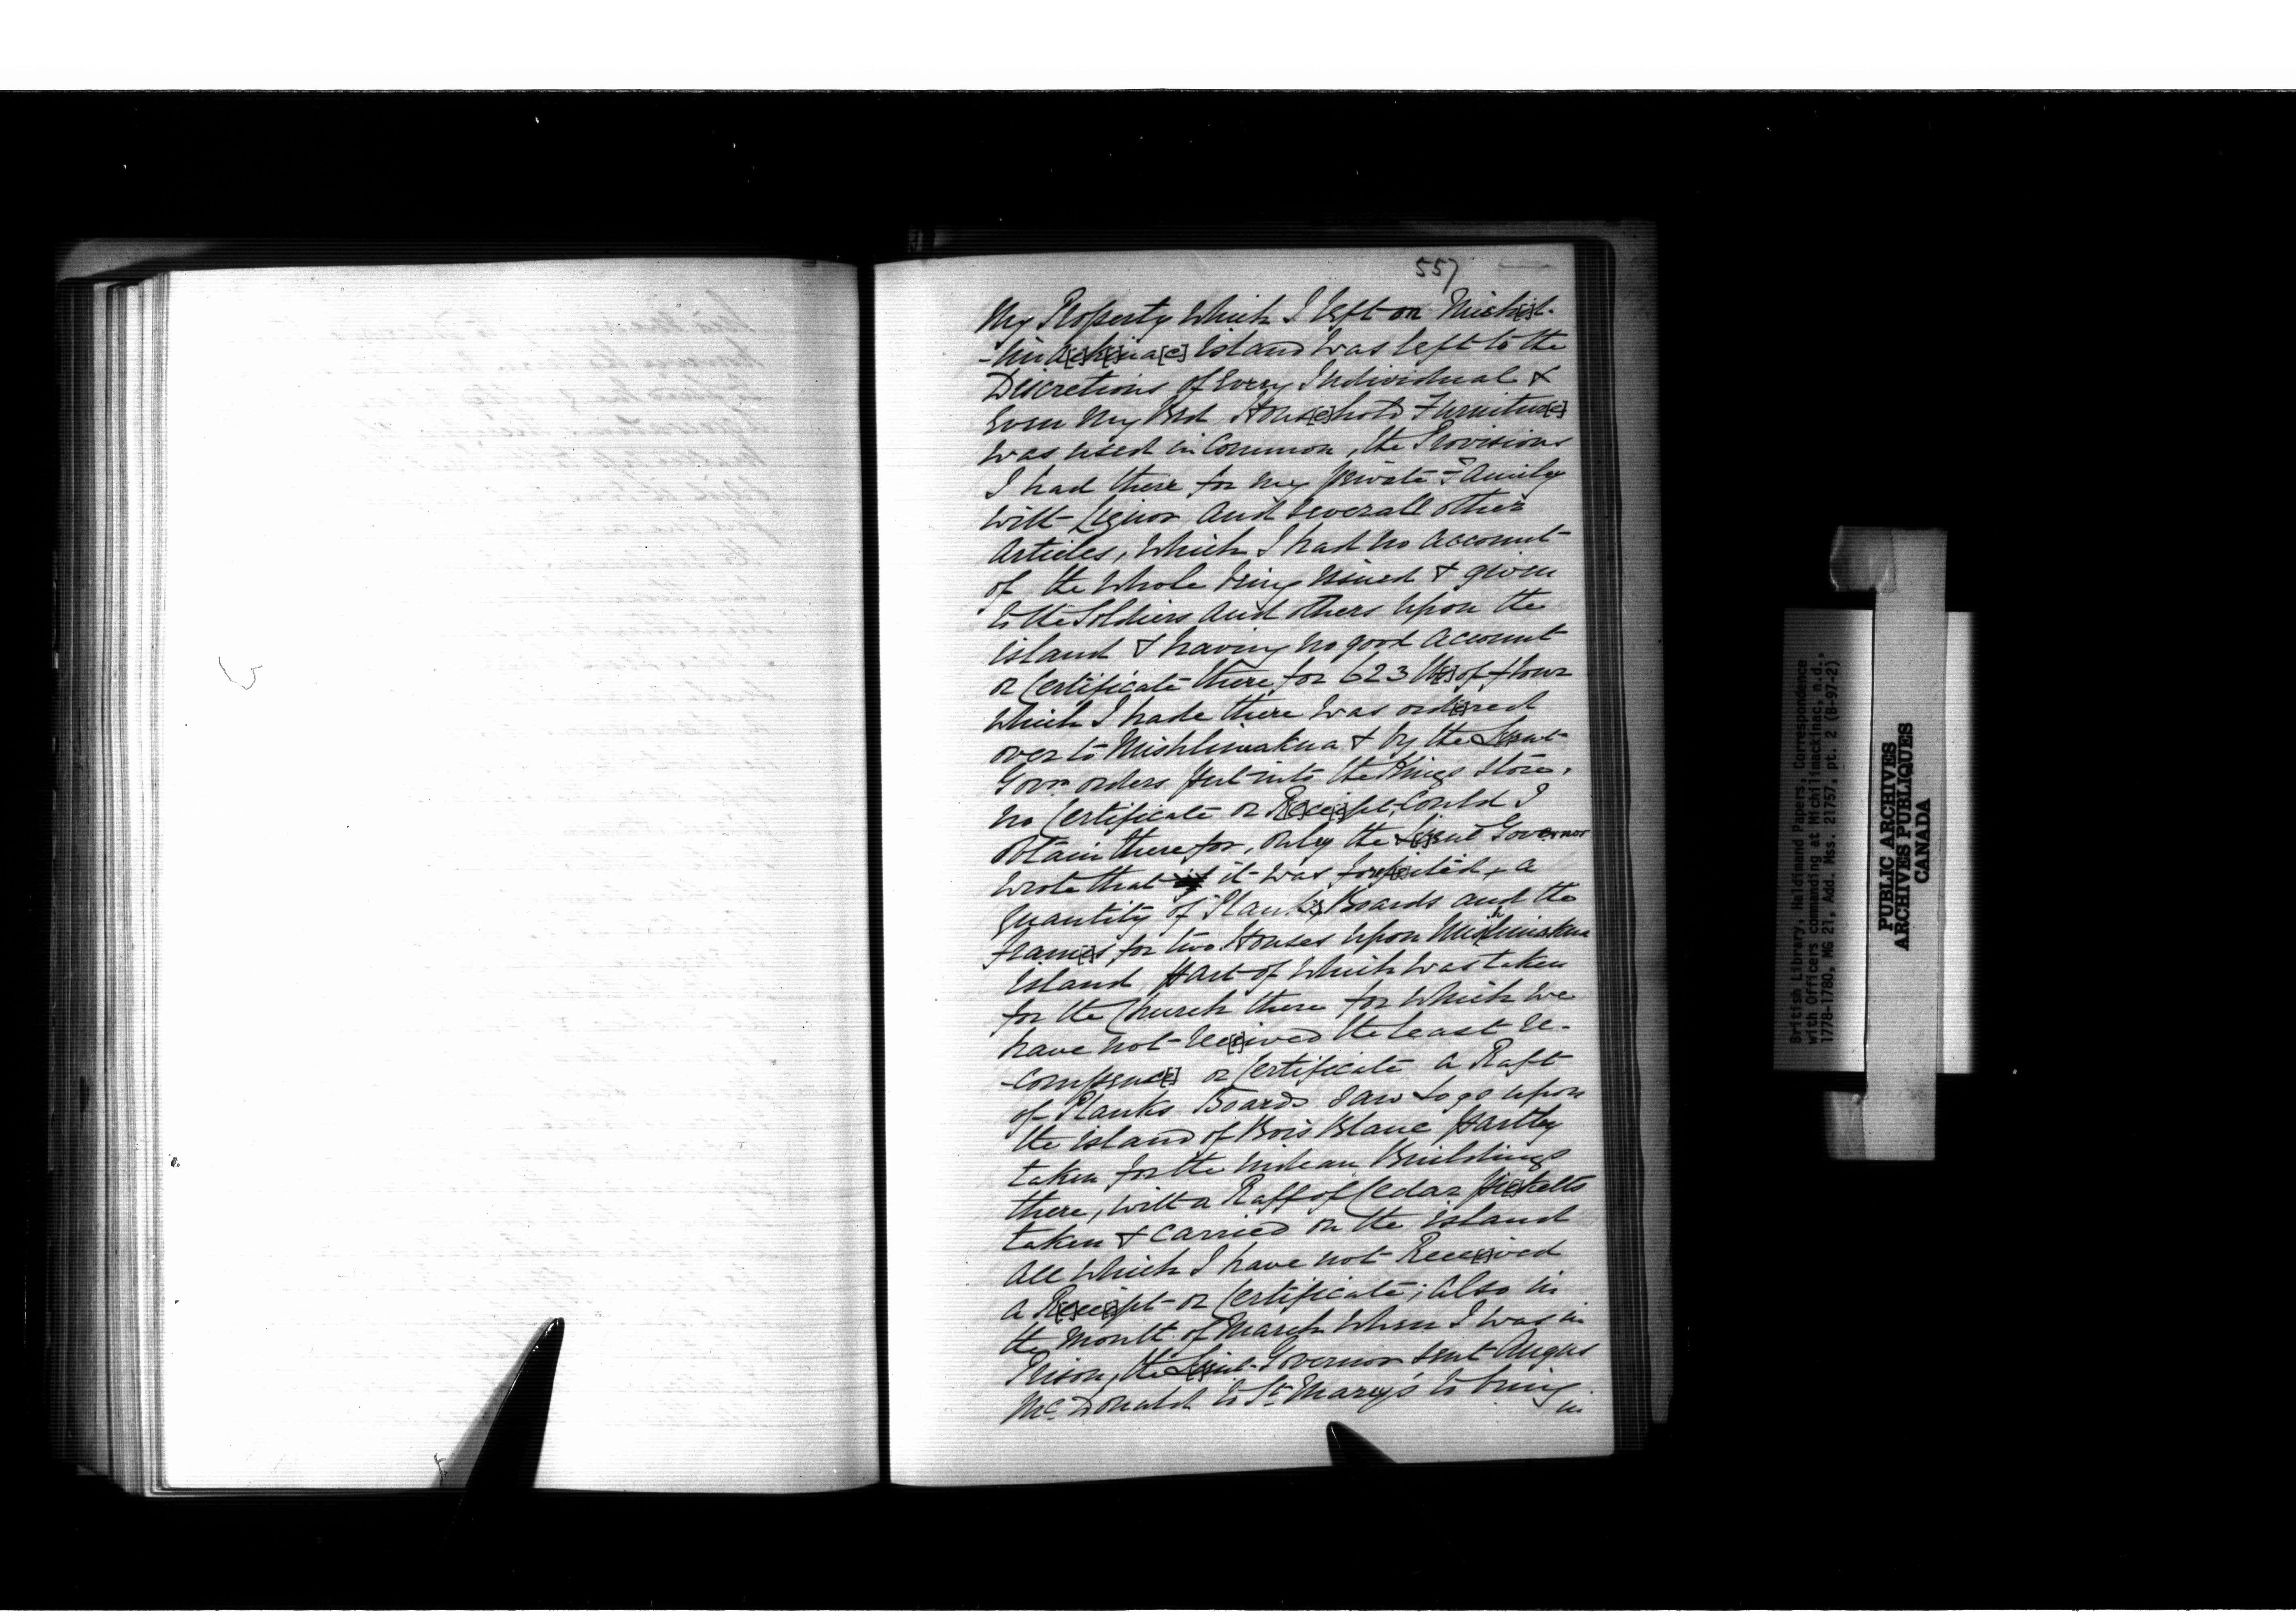 557
My Property Which I left on Mich[i]l-
-lina[c]k[i]na[c] Island Was left to the
Discretions of Every Individual &
Even My Bed Hous[e]hold Furnitur[e]
was used in Common, the Provisions
I had there for my private Family
with Liquor and severall other
Articles, Which I had no Account
of the Whole being Issued & given
to the Soldiers And others upon the
island & having no good Account
or Certificate there for 623 lb[s] of flour
Which I hade there was ord[e]red
over to Mishlimakina & by the Lieut
Govr orders put into the Kings Store,
no Certificate or R[e]ce[i]pt Could I
obtain therefor, only the L[i]eut Governor
wrote that it was forf[e]ited, a
quantity of Plank[s] Boards and the
Fram[e]s for two Houses upon Mishlimakina
Island, part of Which was taken
for the Church there for which we
have not rec[e]ived the least re-
-compenc[e] or Certificate a Raft
of Planks Boards Saw Logs upon
the island of Bois Blanc partly
taken for the Indean Buildings
there, with a Raff of Cedar pi[c]ketts
taken & carried on the island
all Which I have not Rec[e]ived
a R[e]ce[i]pt or Certificate; Also in
the Month of March When I was in
Prison, the L[i]eut. Governor sent Angus
McDonald to St Mary's to bring
in
British Library, Haldimand Papers, Correspondence
with Officers commanding at Michilimackinac, n.d.,
1778-1780, MG 21, Add. Mss. 21757, pt. 2 (B-97-2)
PUBLIC ARCHIVES
ARCHIVES PUBLIQUES
CANADA